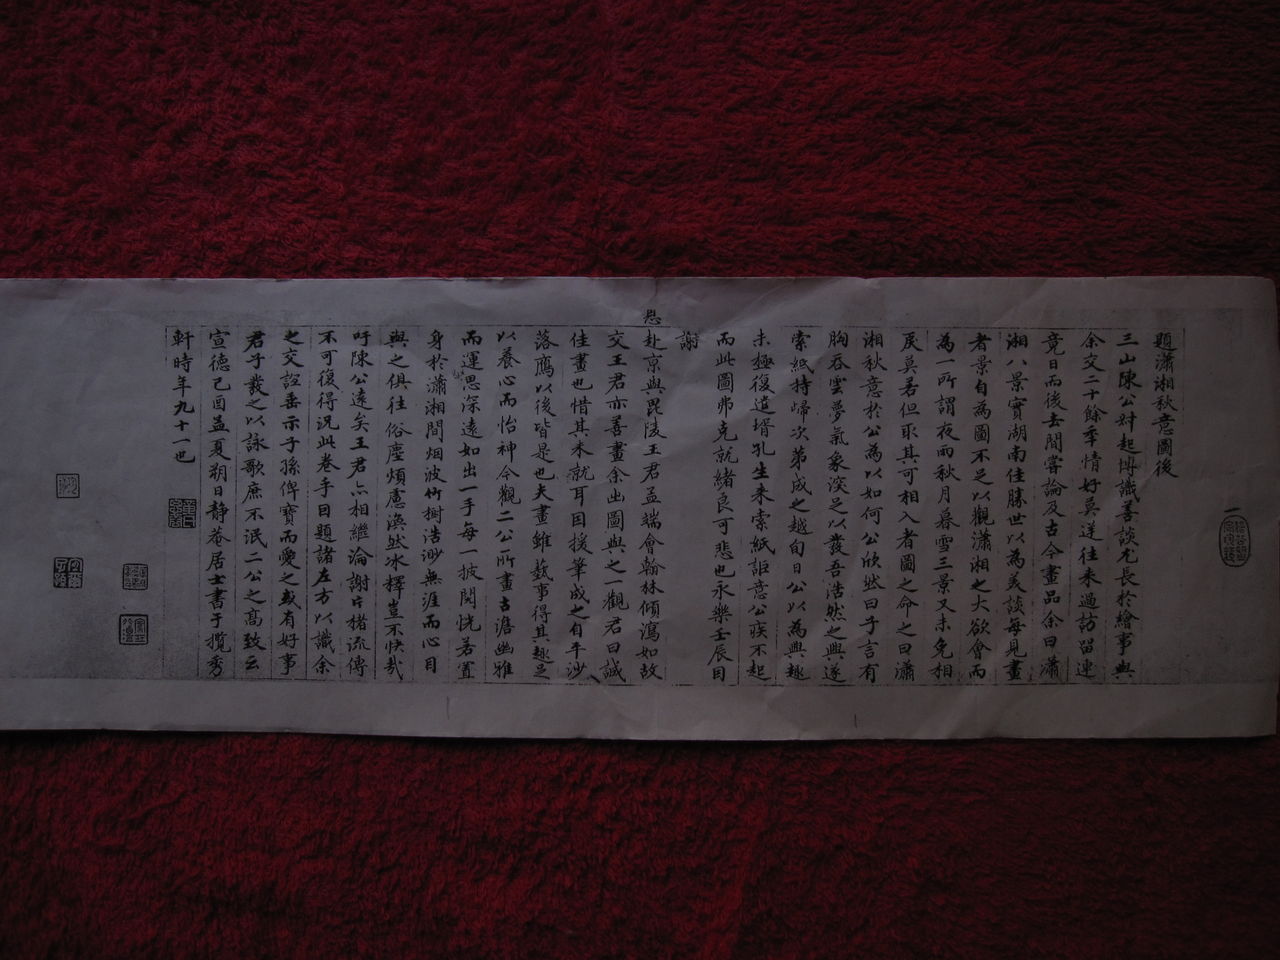 題瀟湘秋意圖後
三山陳公叔起博識善談尤長於繪事與
余交二十餘年情好莫逆往来過訪留連
竟日而後去間嘗論及古今畫品余曰瀟
湘八景實湖南佳勝世以為美談每見畫
者景自為圖不足以觀瀟湘之大欲會而
為一所謂夜雨秋月暮雪三景又未免相
戾莫若但取其可相入者圖之命之曰瀟
湘秋意於公為以如何公欣然曰予言有
胸吞雲夢氣象深足以發吾浩然之興遂
索紙持歸次第成之越旬日公以為興趣
未極復遣壻孔生来索紙詎意公疾不起
而此圖弗克就緒良可悲也永樂壬辰目
謝
恩赴京與毘陵王君孟端會翰林傾瀉如故
交王君亦善畫余出圖與之一觀君曰誠
佳畫也惜其未就耳因援筆成之自平沙
落鴈以後皆是也夫畫雖藝事得其趣足
以養心而怡神今觀二公所畫古澹幽雅
而運思深遠如出一手每一披閱恍若置
身於瀟湘間烟波竹樹浩渺無涯而心目
與之俱往俗塵煩慮渙然冰釋豈不快哉
吁陳公遠矣王君亦相繼淪謝片楮流傳
不可復得況此卷乎目題諸左方以識余
之交誼垂示子孫俾寶而愛之或有好事
君子裁之以詠歌庶不泯二公之高致云
宣德己酉孟夏朔日靜菴居士書于攬秀
軒時年九十一也